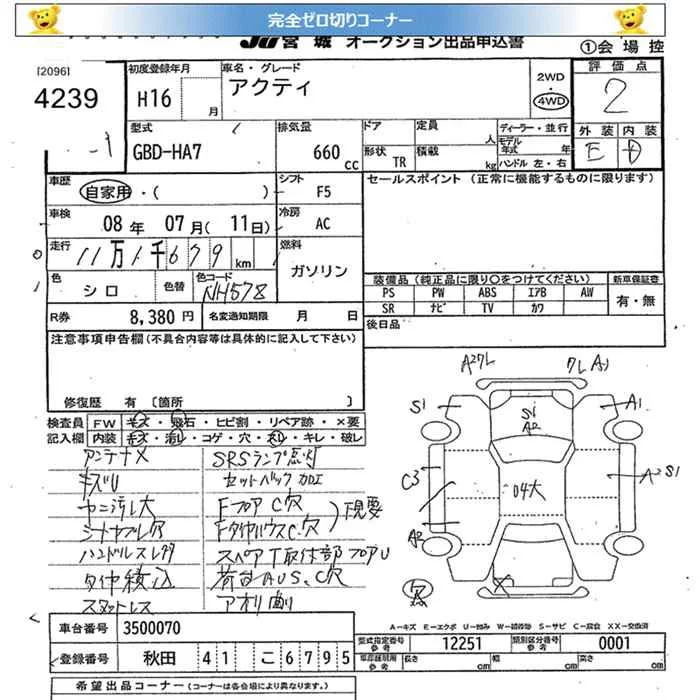 完全ゼロ切りコーナー
JU宮城 オークション出品申込書
①会場控
[2096]
4239
初度登録年月
H16 月
車名・グレード
アクティ
2WD
4WD
評価点
2
外装 内装
E D
型式
GBD-HA7
排気量
660 cc
ドア
形状 TR
定員 人
積載 kg
ディーラー・並行
モデル年式 年
ハンドル 左・右
車歴
自家用・( )
シフト
F5
セールスポイント (正常に機能するものに限ります)
車検
08年 07月(11日)
冷房
AC
走行
11万1千679km
燃料
ガソリン
色
シロ
色替
色コード
NH578
装備品(純正品に限り○をつけてください)
新車保証書
PS PW ABS エアB AW
SR ナビ TV カワ
有・無
R券 8,380円
名変通知期限 月 日
後日品
注意事項申告欄(不具合内容等は具体的に記入して下さい)
修復歴 有 [箇所 ]
検査員記入欄
FW キズ・飛石・ヒビ割・リペア跡・×要
内装 キズ・汚レ・コゲ・穴・スレ・キレ・破レ
アンテナメ
SRSランプ点灯
キズU
セットバック加工
ヤニ汚レ大
FフロアC穴
シートヤブレ穴
FタイヤハウスC穴
現要
ハンドルスレ
スペアT取付部フロアU
荷台AUS、C穴
スタットレス
アオリ
A2クレ
クレA1
S1
S1
A2
A1
C3
04大
A2 S1
A2
A-キズ E-エクボ U-凹み W-補修跡 S-サビ C-腐食 XX-交換済
車台番号 3500070
登録番号 秋田 41 こ 6795
型式指定番号 参考 12251
類別区分番号 参考 0001
車庫証明用 参考
長さ cm
幅 cm
高さ cm
希望出品コーナー(コーナーは各会場により異なります。)